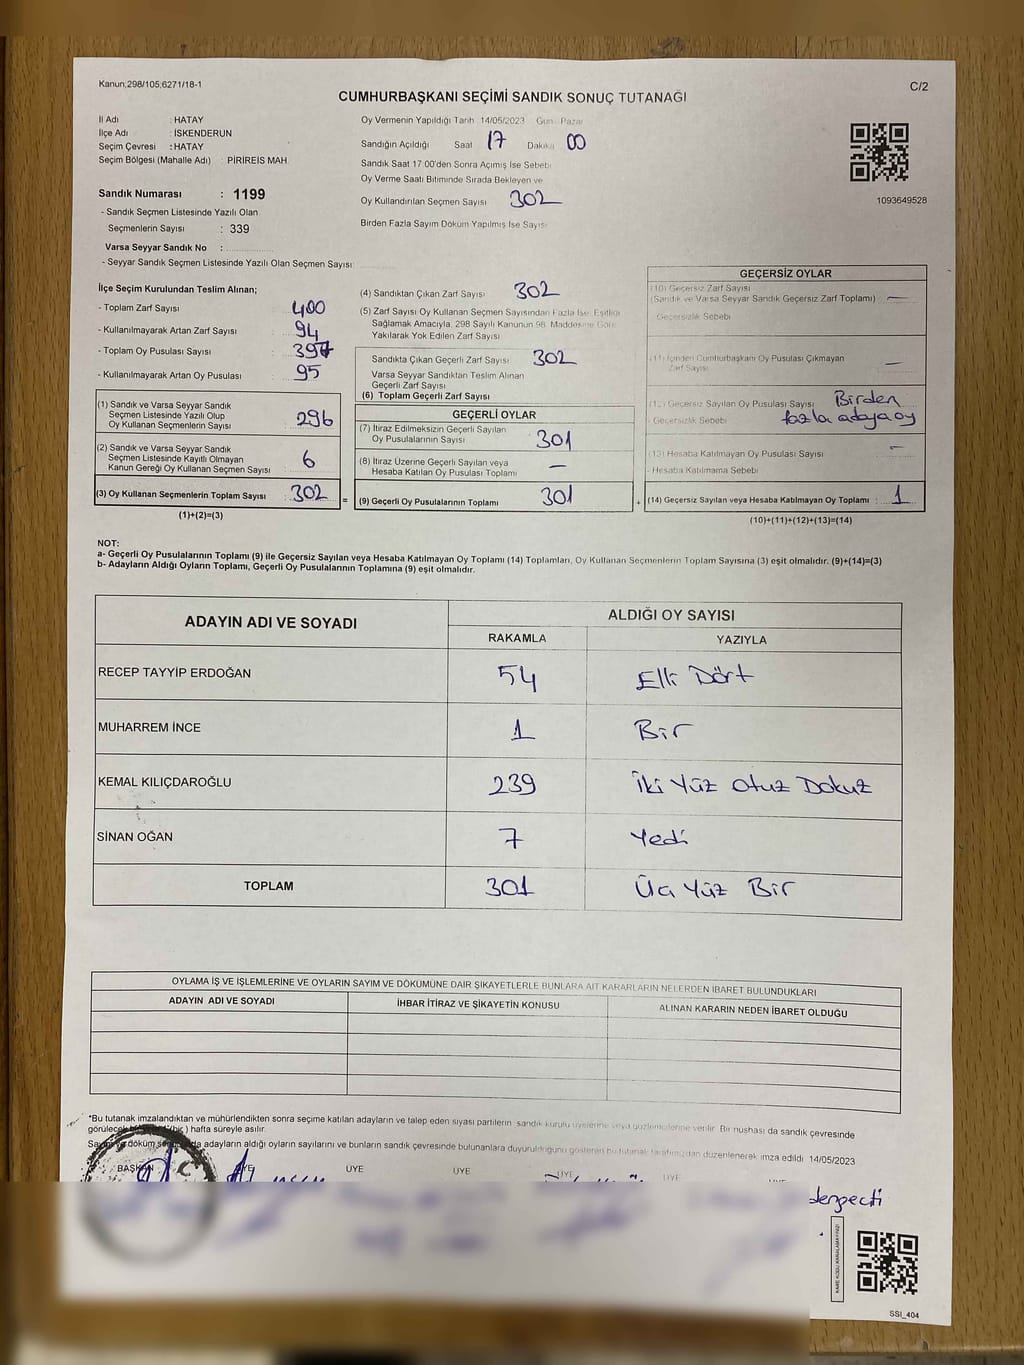 Kanun:298/105;6271/18-1
C/2
CUMHURBAŞKANI SEÇİMİ SANDIK SONUÇ TUTANAĞI
İl Adı : HATAY
İlçe Adı : İSKENDERUN
Seçim Çevresi : HATAY
Seçim Bölgesi (Mahalle Adı) : PİRİREİS MAH.
Sandık Numarası : 1199
- Sandık Seçmen Listesinde Yazılı Olan
Seçmenlerin Sayısı : 339
Varsa Seyyar Sandık No :
- Seyyar Sandık Seçmen Listesinde Yazılı Olan Seçmen Sayısı:
Oy Vermenin Yapıldığı Tarih 14/05/2023 Gün: Pazar
Sandığın Açıldığı Saat 17 Dakika 00
Sandık Saat 17:00'den Sonra Açımış İse Sebebi
Oy Verme Saati Bitiminde Sırada Bekleyen ve
Oy Kullandırılan Seçmen Sayısı 302
Birden Fazla Sayım Döküm Yapılmış İse Sayısı
1093649528
İlçe Seçim Kurulundan Teslim Alınan;
- Toplam Zarf Sayısı : 400
- Kullanılmayarak Artan Zarf Sayısı : 94
- Toplam Oy Pusulası Sayısı : 397
- Kullanılmayarak Artan Oy Pusulası : 95
(1) Sandık ve Varsa Seyyar Sandık
Seçmen Listesinde Yazılı Olup
Oy Kullanan Seçmenlerin Sayısı : 296
(2) Sandık ve Varsa Seyyar Sandık
Seçmen Listesinde Kayıtlı Olmayan
Kanun Gereği Oy Kullanan Seçmen Sayısı : 6
(3) Oy Kullanan Seçmenlerin Toplam Sayısı : 302
(1)+(2)=(3)
(4) Sandıktan Çıkan Zarf Sayısı 302
(5) Zarf Sayısı Oy Kullanan Seçmen Sayısından Fazla İse, Eşitliği
Sağlamak Amacıyla, 298 Sayılı Kanunun 98. Maddesine Göre
Yakılarak Yok Edilen Zarf Sayısı
Sandıkta Çıkan Geçerli Zarf Sayısı 302
Varsa Seyyar Sandıktan Teslim Alınan
Geçerli Zarf Sayısı
(6) Toplam Geçerli Zarf Sayısı
GEÇERLİ OYLAR
(7) İtiraz Edilmeksizin Geçerli Sayılan
Oy Pusulalarının Sayısı : 301
(8) İtiraz Üzerine Geçerli Sayılan veya
Hesaba Katılan Oy Pusulası Toplamı : —
= (9) Geçerli Oy Pusulalarının Toplamı : 301
GEÇERSİZ OYLAR
(10) Geçersiz Zarf Sayısı
(Sandık ve Varsa Seyyar Sandık Geçersiz Zarf Toplamı) : —
- Geçersizlik Sebebi
(11) İçinden Cumhurbaşkanı Oy Pusulası Çıkmayan
Zarf Sayısı —
(12) Geçersiz Sayılan Oy Pusulası Sayısı : Birden
- Geçersizlik Sebebi fazla adaya oy
(13) Hesaba Katılmayan Oy Pusulası Sayısı —
- Hesaba Katılmama Sebebi
+ (14) Geçersiz Sayılan veya Hesaba Katılmayan Oy Toplamı : 1
(10)+(11)+(12)+(13)=(14)
NOT:
a- Geçerli Oy Pusulalarının Toplamı (9) ile Geçersiz Sayılan veya Hesaba Katılmayan Oy Toplamı (14) Toplamları, Oy Kullanan Seçmenlerin Toplam Sayısına (3) eşit olmalıdır. (9)+(14)=(3)
b- Adayların Aldığı Oyların Toplamı, Geçerli Oy Pusulalarının Toplamına (9) eşit olmalıdır.
ADAYIN ADI VE SOYADI ALDIĞI OY SAYISI
RAKAMLA YAZIYLA
RECEP TAYYİP ERDOĞAN 54 Elli Dört
MUHARREM İNCE 1 Bir
KEMAL KILIÇDAROĞLU 239 İki Yüz Otuz Dokuz
SİNAN OĞAN 7 Yedi
TOPLAM 301 Üç Yüz Bir
OYLAMA İŞ VE İŞLEMLERİNE VE OYLARIN SAYIM VE DÖKÜMÜNE DAİR ŞİKAYETLERLE BUNLARA AİT KARARLARIN NELERDEN İBARET BULUNDUKLARI
ADAYIN ADI VE SOYADI İHBAR İTİRAZ VE ŞİKAYETİN KONUSU ALINAN KARARIN NEDEN İBARET OLDUĞU
*Bu tutanak imzalandıktan ve mühürlendikten sonra seçime katılan adayların ve talep eden siyasi partilerin sandık kurulu üyelerine veya gözlemcilerine verilir. Bir nüshası da sandık çevresinde
görülecek (bir) hafta süreyle asılır.
adayların aldığı oyların sayılarını ve bunların sandık çevresinde bulunanlara duyurulduğunu gösteren bu tutanak tarafımızdan düzenlenerek imza edildi. 14/05/2023
BAŞKAN ÜYE ÜYE ÜYE ÜYE ÜYE
SSI_404